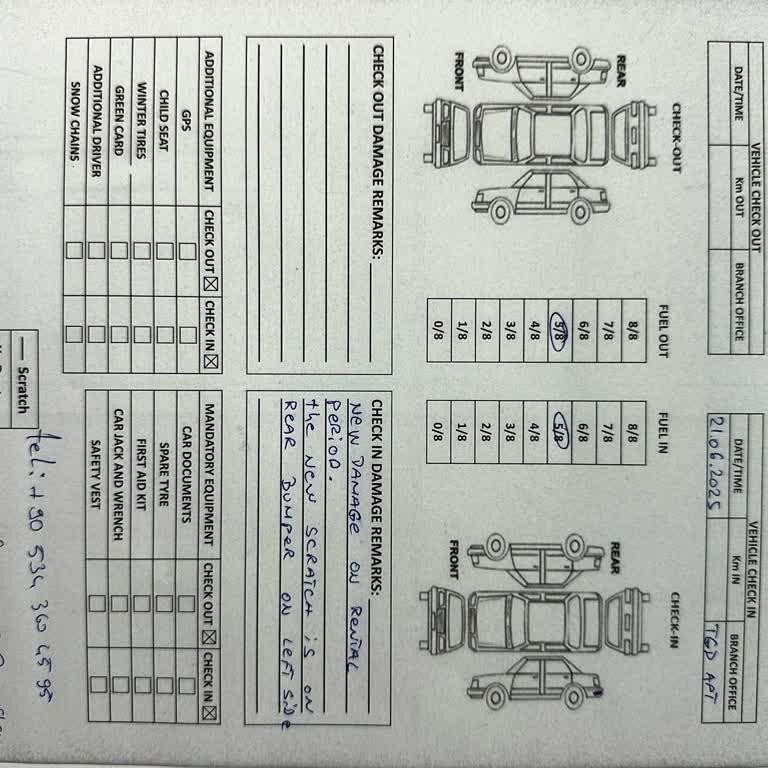 VEHICLE CHECK OUT
DATE/TIME Km OUT BRANCH OFFICE
VEHICLE CHECK IN
DATE/TIME Km IN BRANCH OFFICE
21.06.2025 TGD APT
CHECK-OUT
REAR
FRONT
FUEL OUT
8/8
7/8
6/8
5/8
4/8
3/8
2/8
1/8
0/8
FUEL IN
8/8
7/8
6/8
5/8
4/8
3/8
2/8
1/8
0/8
CHECK-IN
REAR
FRONT
CHECK OUT DAMAGE REMARKS:
CHECK IN DAMAGE REMARKS:
NEW DAMAGE ON RENTAL
PERIOD.
the NEW SCRATCH IS ON
REAR BUMPER ON LEFT SIDE
ADDITIONAL EQUIPMENT CHECK OUT CHECK IN
GPS
CHILD SEAT
WINTER TIRES
GREEN CARD
ADDITIONAL DRIVER
SNOW CHAINS
MANDATORY EQUIPMENT CHECK OUT CHECK IN
CAR DOCUMENTS
SPARE TYRE
FIRST AID KIT
CAR JACK AND WRENCH
SAFETY VEST
— Scratch
tel: +90 534 360 45 95